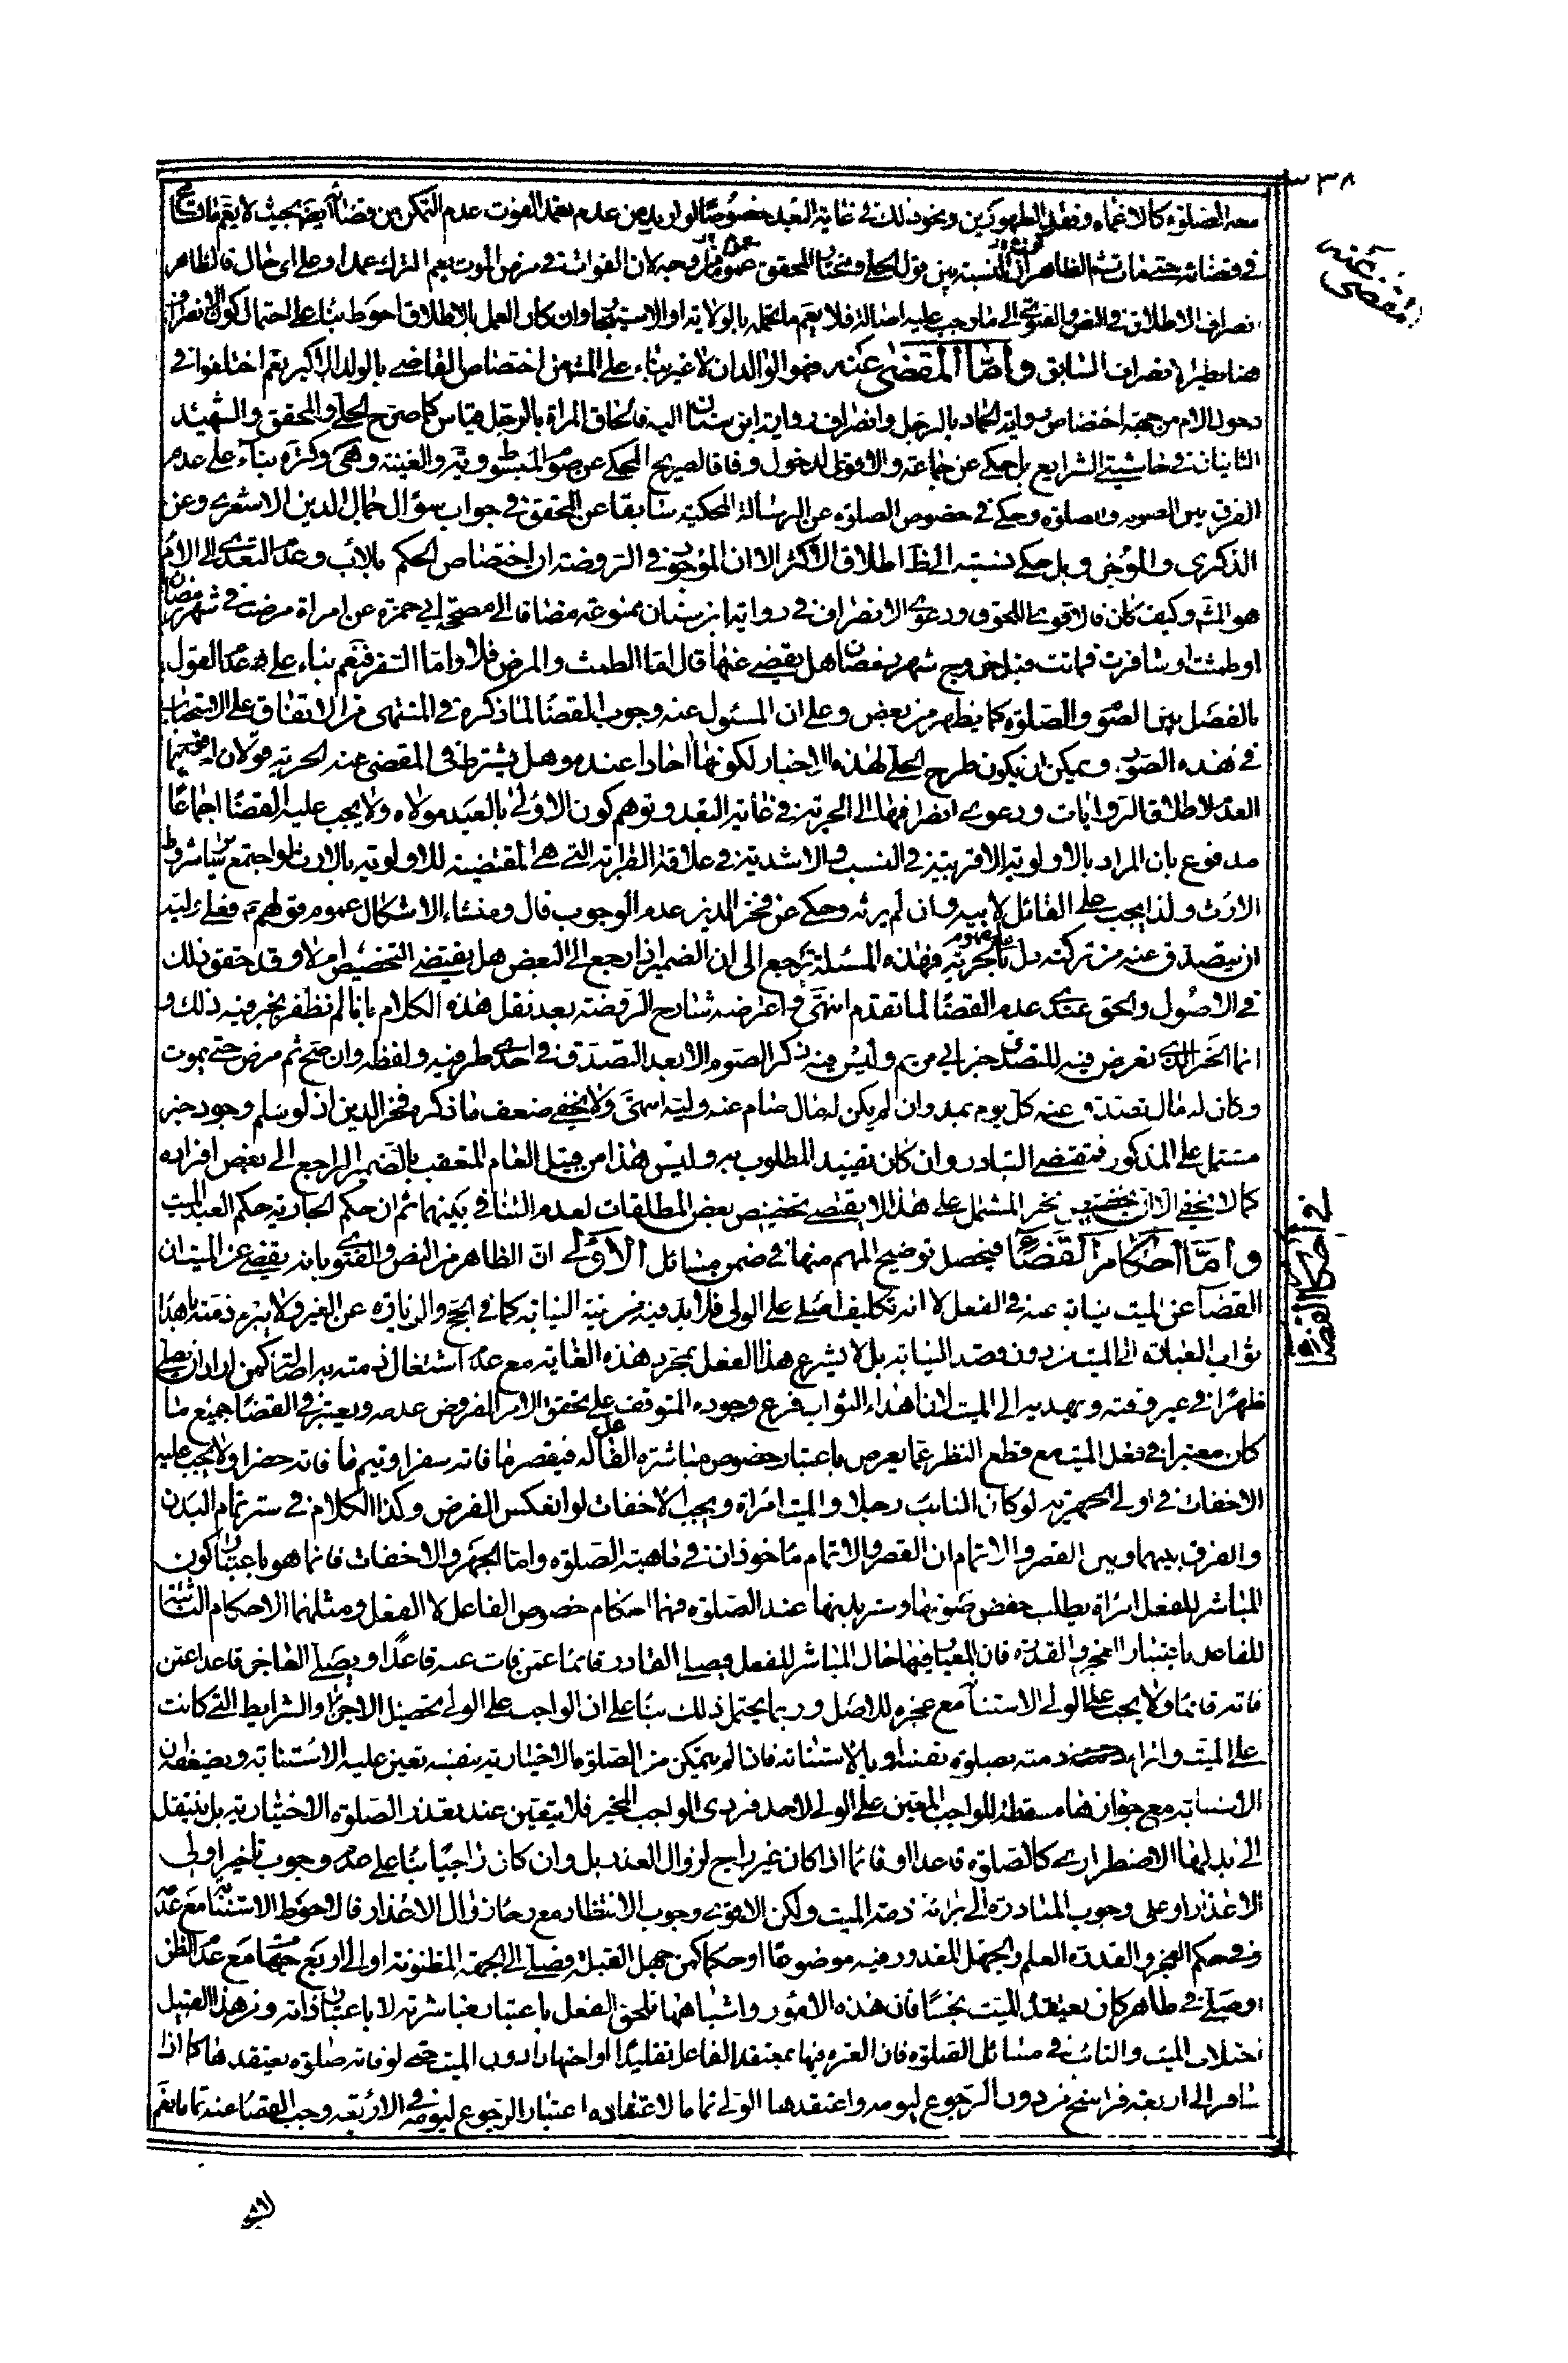 ٣٣٨
المقضي عنه
معه الصلوة كالاغماء وفقد الطهورين ونحو ذلك في غاية البعد خصوصا لو اريد من عدم تعمد الفوت عدم التمكن من قضائه ايضا بحيث لا يعم ما تسامح
في قضائه حتى مات ثم الظاهر ان النسبة بين قول الحلي ومختار المحقق عموم من وجه لان الفوائت في مرض الموت يعم الترك عمدا وعلى اي حال فالظاهر
انصراف الاطلاق في النص والفتوى الى ما وجب عليه اصالة فلا يعم ما تحمله بالولاية او الاستيجار وان كان العمل بالاطلاق احوط بناء على احتمال كون الانصراف
هنا نظير الانصراف السابق واما المقضي عنه فهو الوالدان لا غير بناء على المشهور من اختصاص القاضي بالولد الاكبر نعم اختلفوا في
دخول الام من جهة اختصاص رواية حماد بالرجل وانصراف رواية ابن سنان اليه فالحاق المراة بالرجل قياس كما صرح الحلي والمحقق والشهيد
الثانيان في حاشيتي الشرايع بل حكي عن جماعة والاقوى الدخول وفاقا لصريح المحكي عن صوم المبسوط ويه والغنية وهى وكره بناء على عدم
الفرق بين الصوم والصلوة وحكي في خصوص الصلوة عن الرسالة المحكية سابقا عن المحقق في جواب سؤال جمال الدين الاشعري وعن
الذكرى والموجز وبل حكي نسبته الى ظ اطلاق الاكثر الا ان الموجود في الروضة ان اختصاص الحكم بالاب وعدم التعدي الى الام
هو المشهور وكيف كان فالاقوى اللحوق ودعوى الانصراف في رواية ابن سنان ممنوعة مضافا الى مصححة ابي حمزة عن امراة مرضت في شهر رمضان
او طمثت او سافرت فماتت قبل خروج شهر رمضان هل يقضي عنها قال اما الطمث والمرض فلا واما السفر فنعم بناء على عدم القول
بالفصل بين الصوم والصلوة كما يظهر من بعض وعلى ان المسئول عنه وجوب القضاء لما ذكره في المنتهى من الاتفاق على الاستحباب
في هذه الصور ويمكن ان يكون طرح الحلي لهذه الاخبار لكونها احادا عنده وهل يشترط في المقضي عنه الحرية قولان اقويهما
العدم لاطلاق الروايات ودعوى انصرافها الى الحر في غاية البعد وتوهم كون الاولى بالعبد مولاه ولا يجب عليه القضاء اجماعا
مدفوع بان المراد بالاولوية الاقربية في النسب والاشدية في علاقة القرابة التي هي المقتضية للاولوية بالارث لو اجتمع سائر شروط
الارث ولذا يجب على القاتل لابيه وان لم يرثه وحكي عن فخر الدين عدم الوجوب قال ومنشاء الاشكال عموم قولهم ع فعلى وليه
ان يتصدق عنه من تركته دل بمفهومه على الحرية فهذه المسئلة ترجع الى ان الضمير اذا رجع الى البعض هل يقتضي التخصيص ام لا وقد حقق ذلك
في الاصول والحق عندي عدم القضاء لما تقدم انتهى واعترضه شارح الروضة بعد نقل هذه الكلام بانا لم نظفر بخبر فيه ذلك و
انما الخبر الذي تعرض فيه للتصدق خبر ابي مريم وليس فيه ذكر الصوم الا بعد التصدق في احدى طرفيه ولفظه وان صح ثم مرض حتى يموت
وكان له مال تصدق عنه كل يوم بمد وان لم يكن له مال صام عنه وليه انتهى ولا يخفى ضعف ما ذكره فخر الدين اذ لو سلم وجود خبر
مشتمل على المذكور فتقتضى التبادر وان كان تقييد المطلوب به وليس هذا من قبيل العام المتعقب بالضمير الراجع الى بعض افراده
كما لا يخفى الا ان الخبر المشتمل على هذا لا يقتضي تخصيص بعض المطلقات لعدم التنافي بينهما ثم ان حكم الجارية حكم العبد الميت
في احكام القضاء
واما احكام القضاء فيحصل توضيح المهم منها في ضمن مسائل الاولى ان الظاهر من النص والفتوى بانه يقضي عن الميت ان
القضاء عن الميت نيابة عنه في الفعل لا انه تكليف اصلي على الولي فلا بد فيه من نية النيابة كما في الحج والزيارة عن الغير ولا يبرء ذمته باهداء
ثواب العبادة الى الميت من دون قصد النيابة بل لا يشرع هذا الفعل بمجرد هذه الغاية مع عدم اشتغال ذمته به اصالة كمن اراد ان يصلي
ظهرا في غير وقته ويهديه الى الميت لان اهداء الثواب فرع وجوده المتوقف على تحقق الامر المفروض عدمه ويعتبر في القضاء جميع ما
كان معتبرا في فعل الميت مع قطع النظر عما يعرض باعتبار خصوص مباشرة الفاعل له فيقصر ما فاته سفرا ويتم ما فاته حضرا ولا يجب عليه
الاخفات في اولى الجهرية لو كان النائب رجلا والميت امراة ويجب الاخفات لو انعكس الفرض وكذا الكلام في ستر تمام البدن
والفرق بينهما وبين القصر والاتمام ان القصر والاتمام ماخوذان في ماهية الصلوة واما الجهر والاخفات فانما هو باعتبار كون
المباشر للفعل امراة يطلب خفض صوتها وستر بدنها عند الصلوة فهما احكام خصوص الفاعل لا الفعل ومثلهما الاحكام الثابتة
للفاعل باعتبار العجز والقدرة فان المعيار فيها حال المباشر للفعل فيصلي القادر قائما عمن فات عنه قاعدا ويصلي العاجز قاعدا عمن
فاته قائما ولا يجب على الولي الاستنابة مع عجزه للاصل وربما يحتمل ذلك بناء على ان الواجب على الولي تحصيل الاجزاء والشرايط التي كانت
على الميت وابراء ذمته بصلوة نفسه او بالاستنابة فان لم يتمكن من الصلوة الاختيارية بنفسه تعين عليه الاستنابة ويضعف ان
الاستنابة مع جوازها مسقطة للواجب المعين على الولي لا احد فردي الواجب المخير فلا يتعين عند تعذر الصلوة الاختيارية بل ينتقل
الى بدلها الاضطراري كالصلوة قاعدا او قائما اذا كان غير راج لزوال العذر بل وان كان راجيا بناء على عدم وجوب تاخير اولي
الاعذار او على وجوب المبادرة الى ابراء ذمة الميت ولكن الاقوى وجوب الانتظار مع رجاء زوال الاعذار فالاحوط الاستنابة مع عدمه
وفي حكم العجز والقدرة العلم والجهل المعذور فيه موضوعا او حكما كمن جهل القبلة فصلى الى الجهة المظنونة او الى اربع جهات مع عدم الظن
او صلى في طاهر كان يعتقد الميت نجسا فان هذه الامور واشباهها تلحق الفعل باعتبار مباشرته لا باعتبار ذاته ومن هذا القبيل
اختلاف الميت والنائب في مسائل الصلوة فان العبرة فيها بمعتقد الفاعل تقليدا او اجتهادا دون الميت حتى لو فاته صلوة يعتقدها كما اذا
سافر الى اربعة فراسخ من دون الرجوع ليومه واعتقدها الولي تماما لاعتقاده اعتبار الرجوع ليومه في الاربعة وجب القضاء عنه تماما نعم